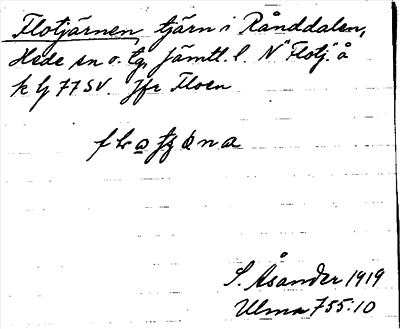 Flotjärnen, tjärn i Rånddalen,
Hede sn o. tg, Jämtl. l. N "Flotj." å
k bl 77 SV. Jfr Floen
S. Åsander 1919
Ulma 755:10